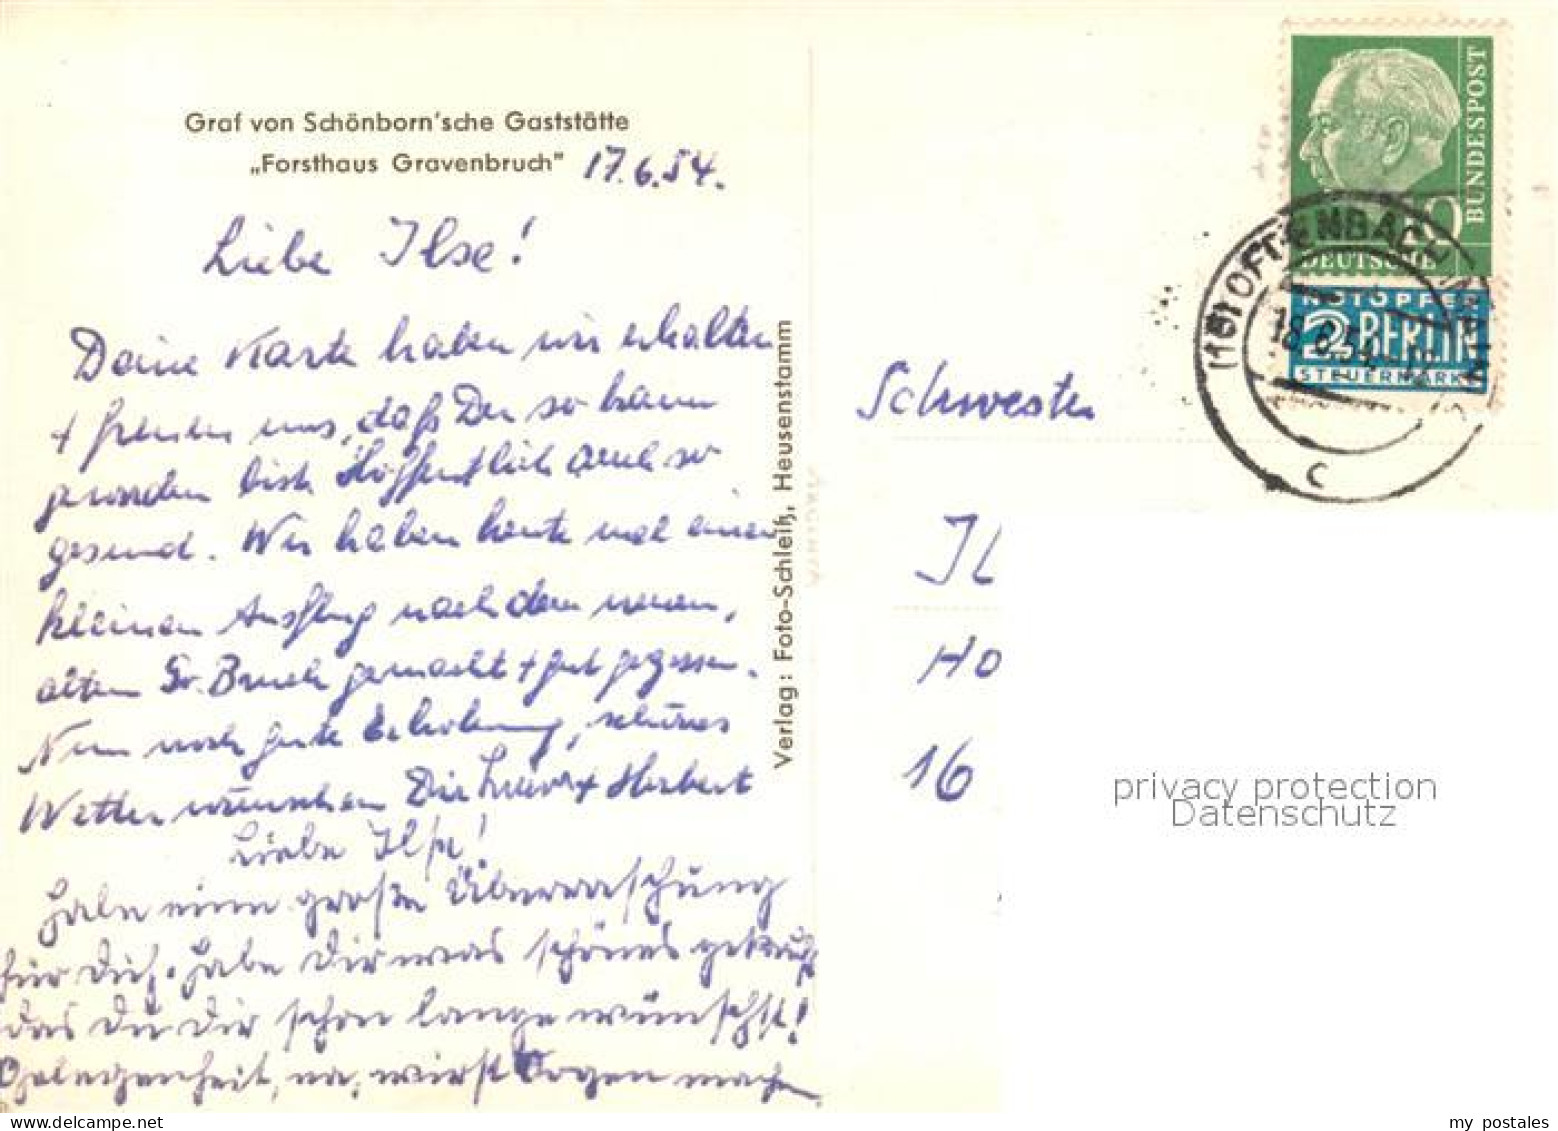 Graf von Schönborn'sche Gaststätte
„Forsthaus Gravenbruch" 17.6.54.
Liebe Ilse!
Deine Karte haben wir erhalten
+ freuen uns, daß Du so braun
geworden bist. Hoffentlich auch so
gesund. Wir haben heute mal einen
kleinen Ausflug nach dem neuen,
alten Gr. Bruch gemacht + gut gegessen.
Nun noch gute Erholung, schönes
Wetter wünschen Dir + Herbert
Liebe Ilse!
Habe eine große Überraschung
für Dich. Habe Dir was schönes gekauft
das Du Dir schon lange wünschst!
Gelegenheit, na, wirst Augen machen.
Verlag: Foto-Schleiß, Heusenstamm
Schwester
Il
Ho
16
DEUTSCHE
BUNDESPOST
10
NOTOPFER
2 BERLIN
STEUERMARKE
(16) OFFENBACH
18.6.54
c
privacy protection
Datenschutz
my postales